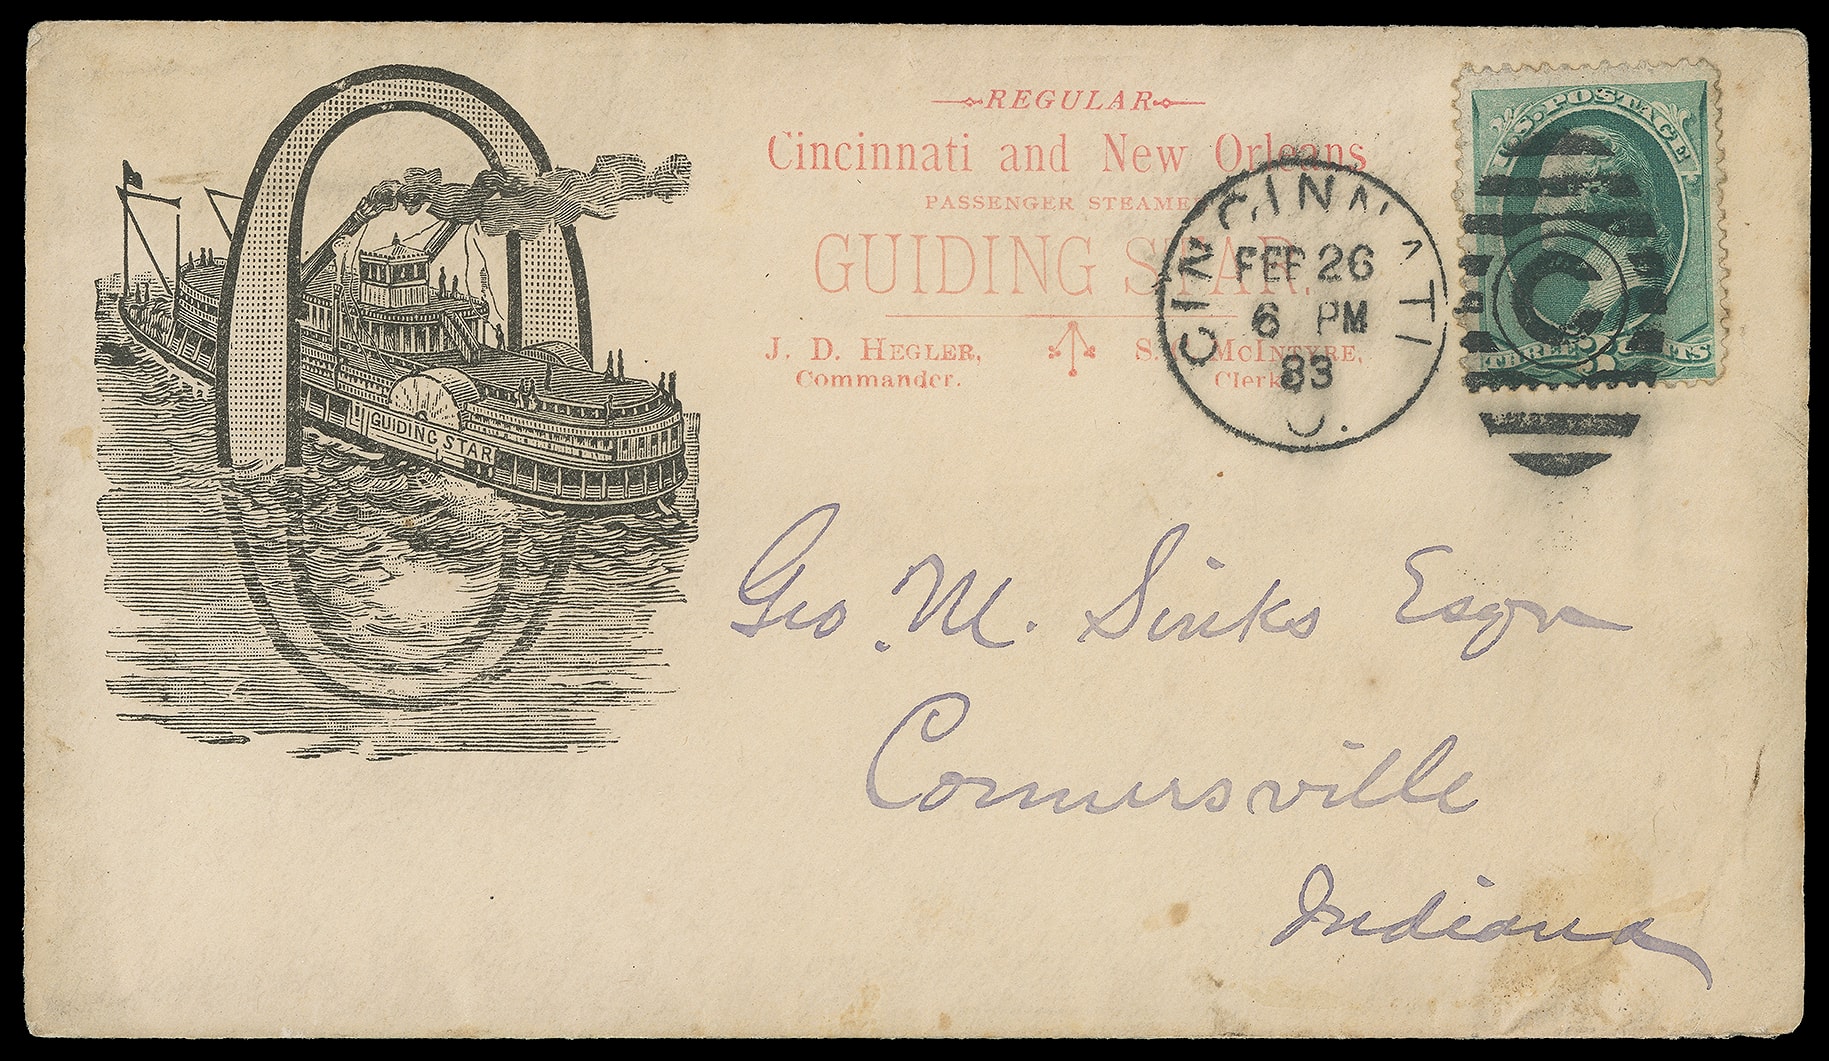 REGULAR
Cincinnati and New Orleans
PASSENGER STEAMER
GUIDING STAR.
J. D. HEGLER, Commander.
McINTYRE, Clerk
GUIDING STAR
CINCINNATI O.
FEB 26
6 PM
83
U.S. POSTAGE
THREE CENTS
C
Geo. M. Sinks Esqr
Connersville
Indiana